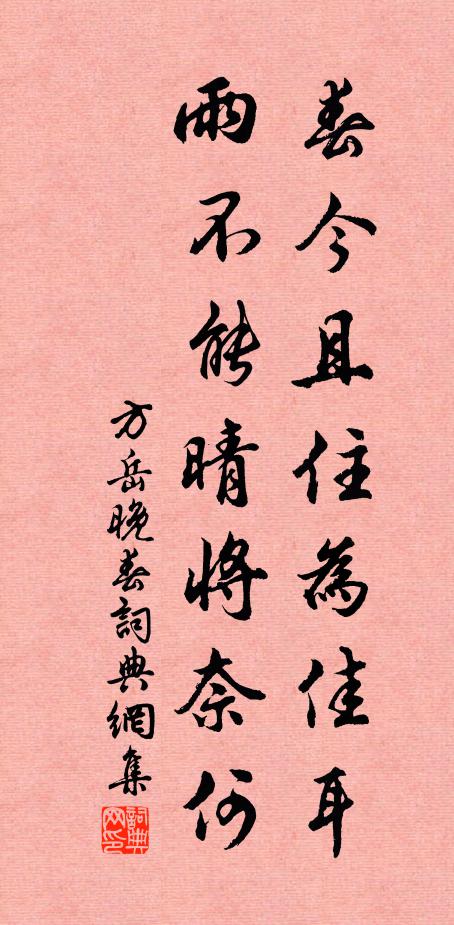 春今且住為佳耳
雨不能晴將奈何
方岳晚春詞典網集
詞典网印